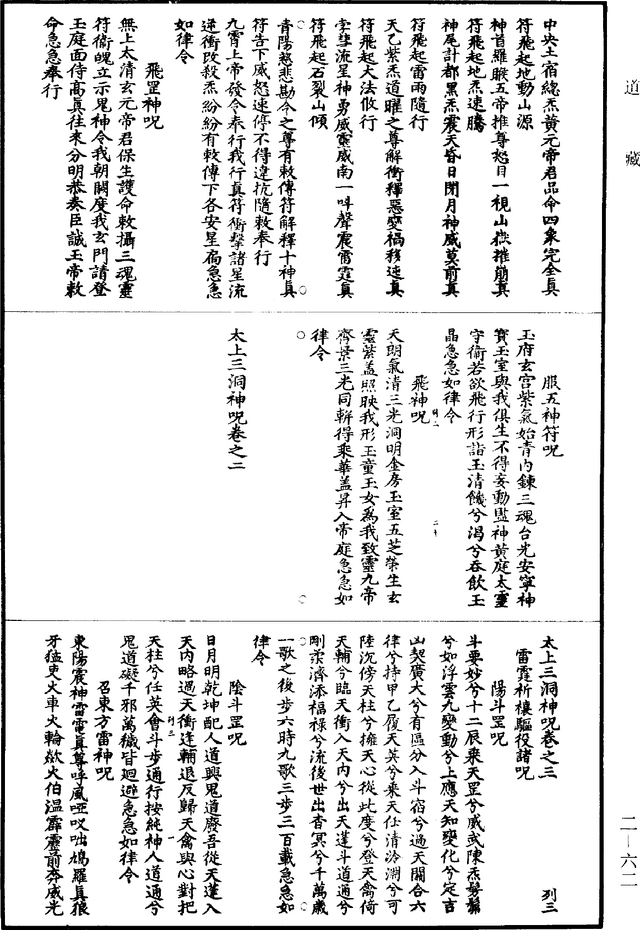 道藏
二—六二
中央土宿總炁黃元帝君品命四象完全真
符飛起地動山源
神首羅睺五帝推尊怒目一視山嶽摧崩真
符飛起地炁速騰
神尾計都黑炁震天昏日閉月神威莫前真
符飛起雷雨隨行
天乙紫炁道曜之尊解衝釋惡變禍移速真
符飛起大法攸行
孛彗流星神勇威靈威南一吽聲震雷霆真
符飛起石裂山傾
青陽慈悲勘今之尊有敕傳符解釋十神真
符告下威怒速停不得違抗隨敕奉行
九霄上帝發令奉行我行真符衝擊諸星流
逆衝改殺炁紛紛有敕傳下各安星宿急急
如律令
飛罡神呪
無上太清玄元帝君保生護命敕攝三魂靈
符衛魄立示鬼神令我朝闕度我玄門請登
玉庭面侍高真往來分明恭奏臣誠玉帝敕
命急急奉行
服五神符呪
玉府玄宮紫氣始青內鍊三魂台光安寧神
寶玉室與我俱生不得妄動監神黃庭太靈
守衛若欲飛行形詣玉清饑兮渴兮吞飲玉
晶急急如律令
飛神呪
天朗氣清三光洞明金房玉室五芝榮生玄
靈紫蓋照映我形玉童玉女為我致靈九帝
齊景三光同軿得乘華蓋昇入帝庭急急如
律令
太上三洞神呪卷之二
太上三洞神呪卷之三
列三
雷霆祈禳驅役諸呪
陽斗罡呪
斗要妙兮十二辰乘天罡兮威或陳炁髣髴
兮如浮雲九變動兮上應天知變化兮定吉
凶契廣大兮有區分入斗宿兮過天關合六
律兮持甲乙履天英兮乘天任清泠淵兮可
陸沉傍天柱兮擁天心從此度兮登天禽倚
天輔兮臨天衝入天內兮出天蓬斗道通兮
剛柔濟添福祿兮流後世出杳冥兮千萬歲
一歌之後步六時九歌三步三百載急急如
律令
陰斗罡呪
日月明乾坤配人道興鬼道廢吾從天蓬入
天內略過天衝逢輔退反歸天禽與心對把
天柱兮任英會斗步通行按純神人道通兮
鬼道礙千邪萬穢皆迴避急急如律令
召東方雷神呪
東陽震神雷電真尊呼風啞哎咄鳩羅真狼
牙猛吏火車火輪欻火伯溫霹靂前奔威光